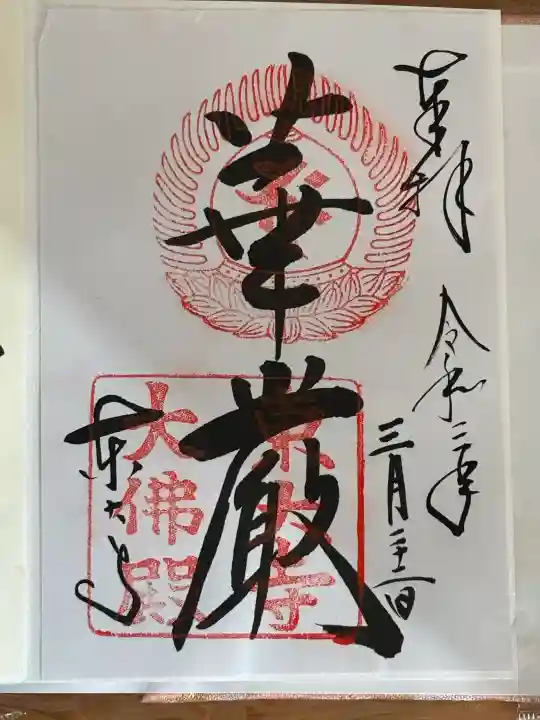 奉拝
令和二年
三月二十二日
華厳
東大寺
東大寺
大佛殿